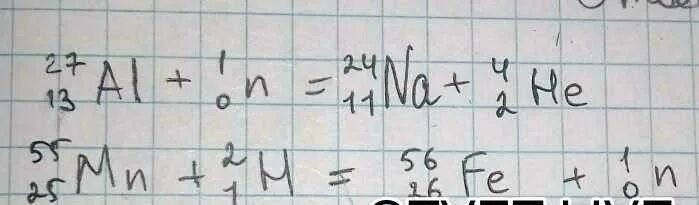 ²⁷₁₃Al + ¹₀n = ²⁴₁₁Na + ⁴₂He
⁵⁵₂₅Mn + ²₁H = ⁵⁶₂₆Fe + ¹₀n